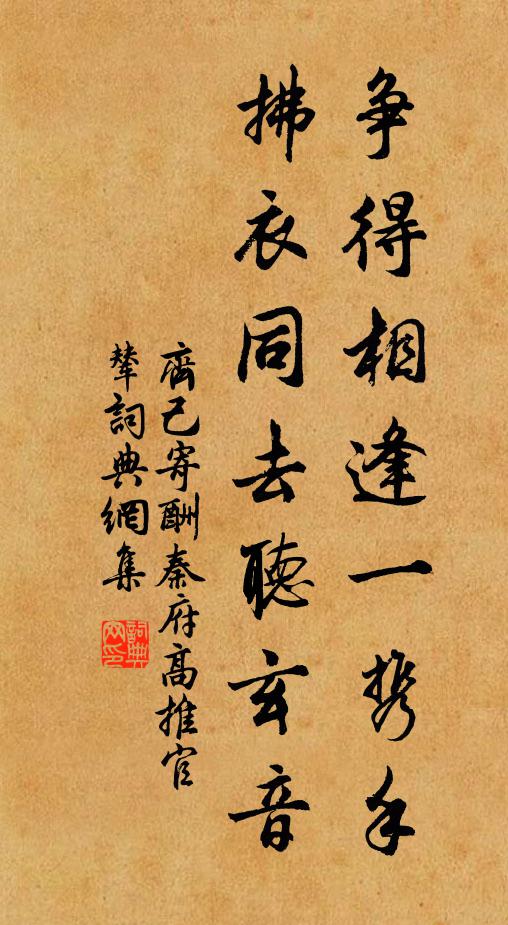 争得相逢一携手
拂衣同去聽玄音
齊己寄酬秦府高推官
輦詞典網集
詞典